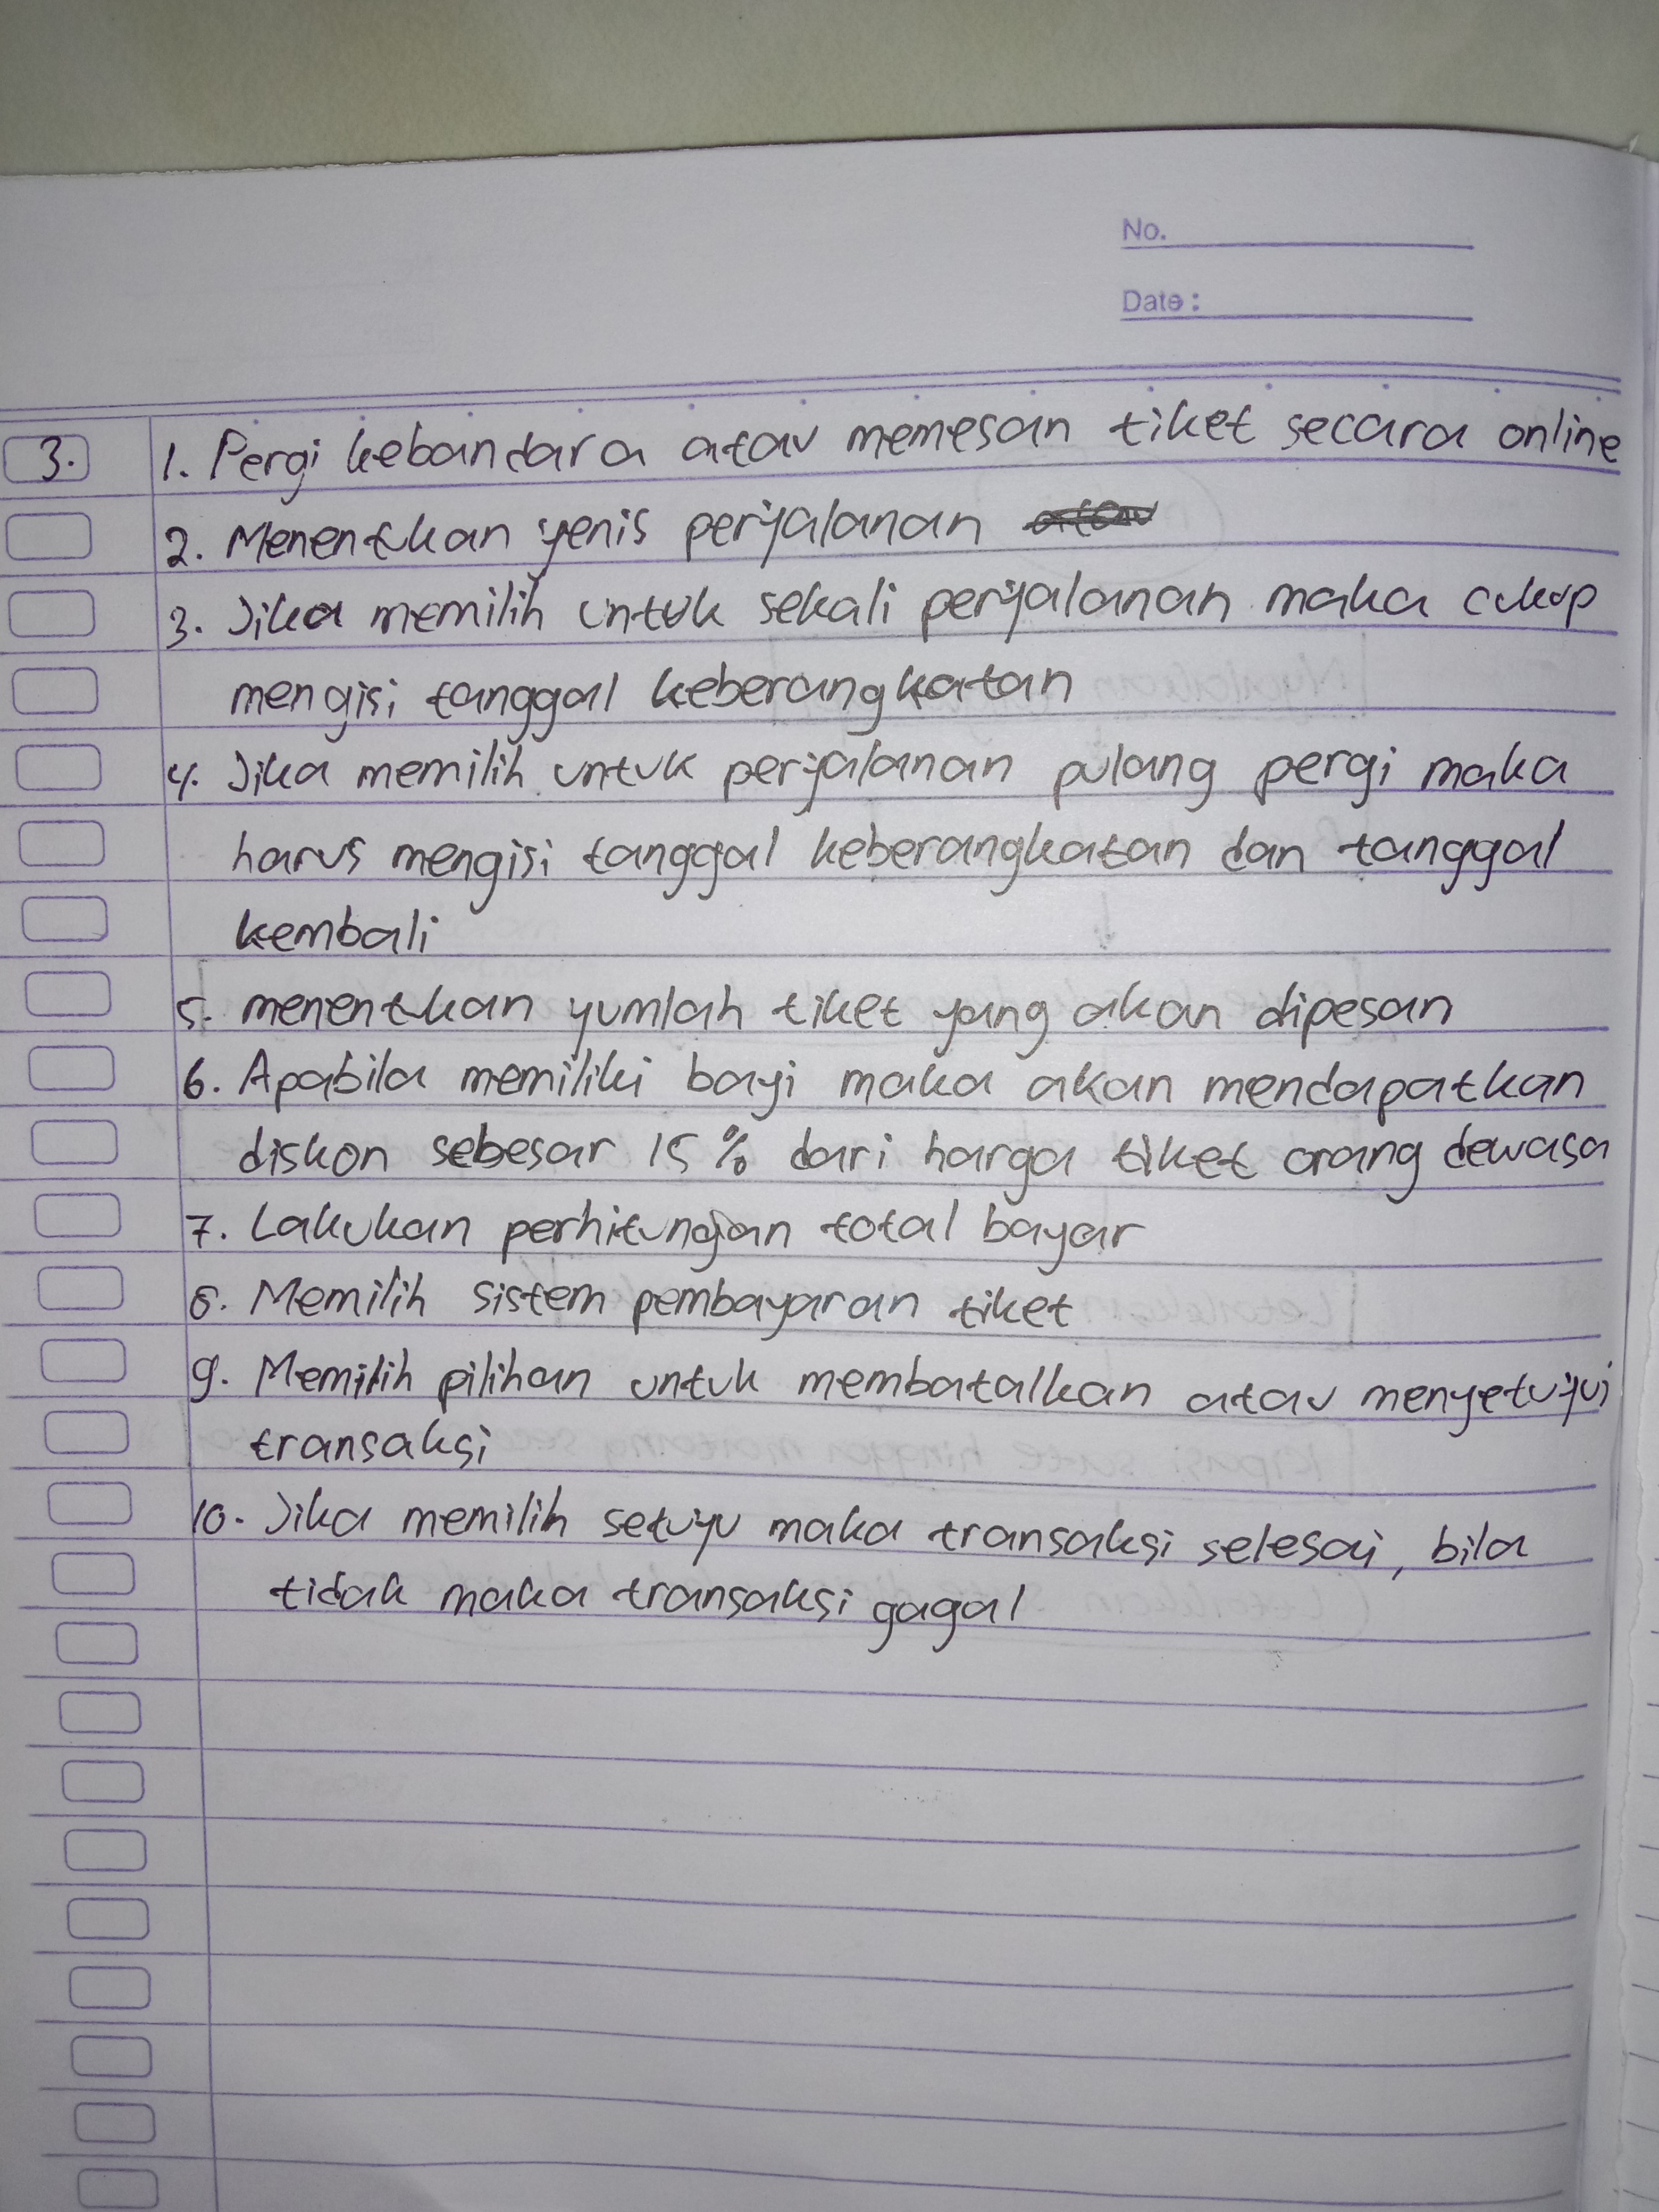 No.
Date :
3. 1. Pergi kebandara atau memesan tiket secara online
2. Menentukan jenis perjalanan atau
3. Jika memilih untuk sekali perjalanan maka cukup
mengisi tanggal keberangkatan
4. Jika memilih untuk perjalanan pulang pergi maka
harus mengisi tanggal keberangkatan dan tanggal
kembali
5. menentukan jumlah tiket yang akan dipesan
6. Apabila memiliki bayi maka akan mendapatkan
diskon sebesar 15% dari harga tiket orang dewasa
7. Lakukan perhitungan total bayar
8. Memilih sistem pembayaran tiket
9. Memilih pilihan untuk membatalkan atau menyetujui
transaksi
10. Jika memilih setuju maka transaksi selesai, bila
tidak maka transaksi gagal